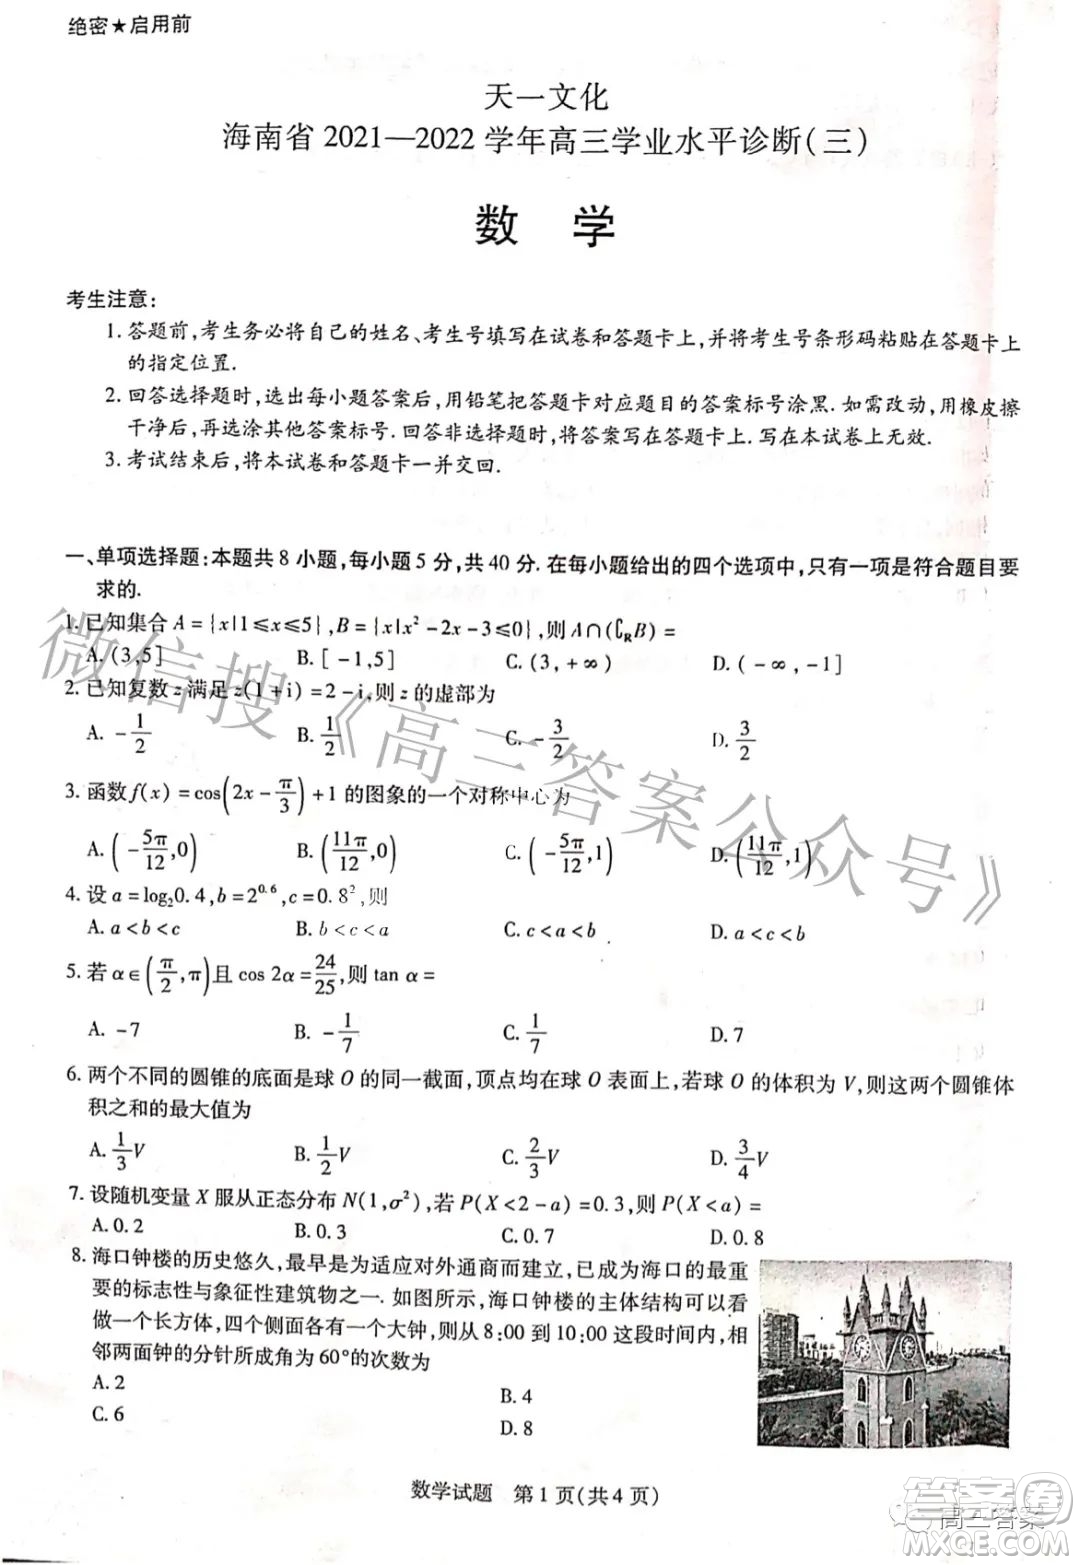 绝密★启用前
天一文化
海南省 2021—2022 学年高三学业水平诊断(三)
数 学
考生注意:
1. 答题前,考生务必将自己的姓名、考生号填写在试卷和答题卡上,并将考生号条形码粘贴在答题卡上
的指定位置.
2. 回答选择题时,选出每小题答案后,用铅笔把答题卡对应题目的答案标号涂黑. 如需改动,用橡皮擦
干净后,再选涂其他答案标号. 回答非选择题时,将答案写在答题卡上. 写在本试卷上无效.
3. 考试结束后,将本试卷和答题卡一并交回.
一、单项选择题:本题共 8 小题,每小题 5 分,共 40 分. 在每小题给出的四个选项中,只有一项是符合题目要
求的.
1. 已知集合 A = {x|1≤x≤5}, B = {x|x² - 2x - 3≤0}, 则 A∩(∁RB) =
A. (3,5] B. [-1,5] C. (3,+∞) D. (-∞,-1]
2. 已知复数 z 满足 z(1+i) = 2-i, 则 z 的虚部为
A. -1/2 B. 1/2 C. -3/2 D. 3/2
3. 函数 f(x) = cos(2x - π/3) + 1 的图象的一个对称中心为
A. (-5π/12,0) B. (11π/12,0) C. (-5π/12,1) D. (11π/12,1)
4. 设 a = log₂0.4, b = 2^0.6, c = 0.8², 则
A. a<b<c B. b<c<a C. c<a<b D. a<c<b
5. 若 α∈(π/2,π) 且 cos 2α = 24/25, 则 tan α =
A. -7 B. -1/7 C. 1/7 D. 7
6. 两个不同的圆锥的底面是球 O 的同一截面,顶点均在球 O 表面上,若球 O 的体积为 V,则这两个圆锥体
积之和的最大值为
A. 1/3 V B. 1/2 V C. 2/3 V D. 3/4 V
7. 设随机变量 X 服从正态分布 N(1,σ²), 若 P(X<2-a) = 0.3, 则 P(X<a) =
A. 0.2 B. 0.3 C. 0.7 D. 0.8
8. 海口钟楼的历史悠久,最早是为适应对外通商而建立,已成为海口的最重
要的标志性与象征性建筑物之一. 如图所示,海口钟楼的主体结构可以看
做一个长方体,四个侧面各有一个大钟,则从 8:00 到 10:00 这段时间内,相
邻两面钟的分针所成角为 60°的次数为
A. 2 B. 4
C. 6 D. 8
数学试题 第 1 页(共 4 页)
微信搜《高三答案公众号》
高三答案
答案圈
MXQE.COM